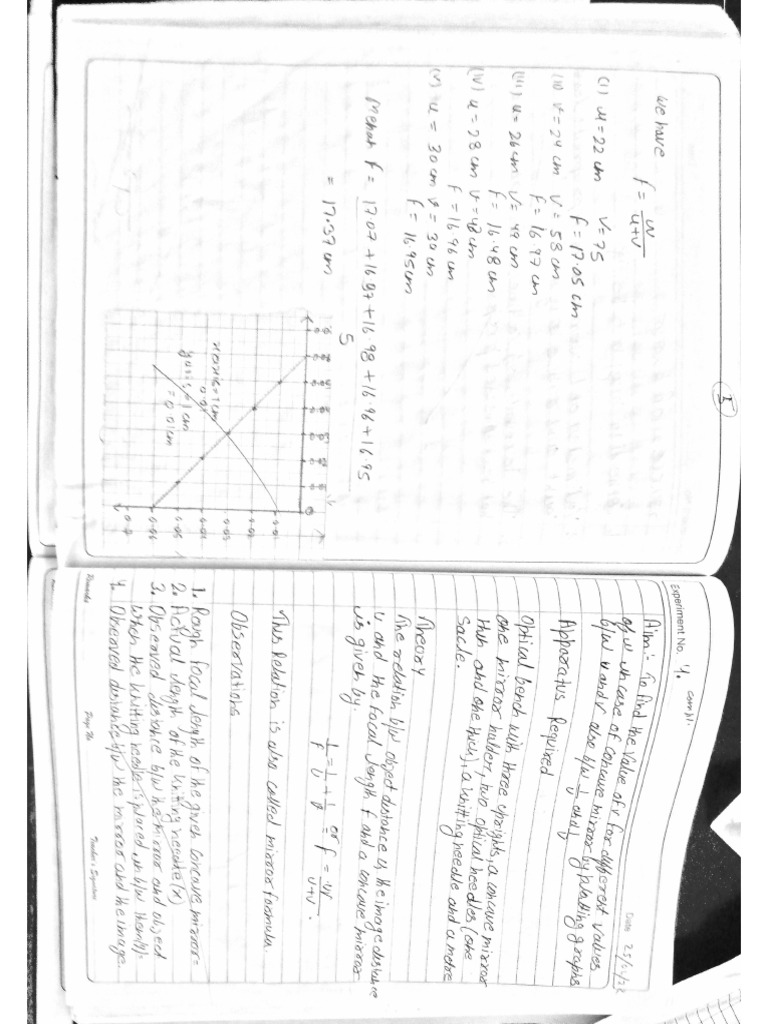 we have f = uv/u+v
(i) u = 22 cm v = 75
f = 17.05 cm
(ii) v = 24 cm v = 58 cm
f = 16.97 cm
(iii) u = 26 cm v = 49 cm
f = 16.98 cm
(iv) u = 28 cm v = 43 cm
f = 16.96 cm
(v) u = 30 cm v = 39 cm
f = 16.95 cm
f = 17.07 + 16.97 + 16.98 + 16.96 + 16.95
5
= 17.37 cm
x axis = 1 cm
0.01
y axis = 1 cm
= 0.01 cm
0.01
0.02
0.03
0.04
0.05
0.06
0.07
Experiment No. 4. compl.
Date 25/
Aim :- To find the value of v for different values
of u in case of concave mirror by plotting graphs
b/w u and v also b/w 1/u and 1/v
Apparatus Required
Optical bench with three uprights, a concave mirror
one mirror holder, two optical needles (one
thin and one thick), a knitting needle and a metre
Scale.
Theory
The relation b/w object distance u the image distance
v and the focal length f and a concave mirror
is given by
1/f = 1/u + 1/v or f = uv/u+v.
This Relation is also called mirror formula.
Observations
1. Rough focal length of the given concave mirror =
2. Actual length of the knitting needle (x)
3. Observed distance b/w the mirror and object
when the knitting needle is placed in b/w them(y).
4. Observed distance b/w the mirror and the image.
Remarks
Page No
Teacher's Signature